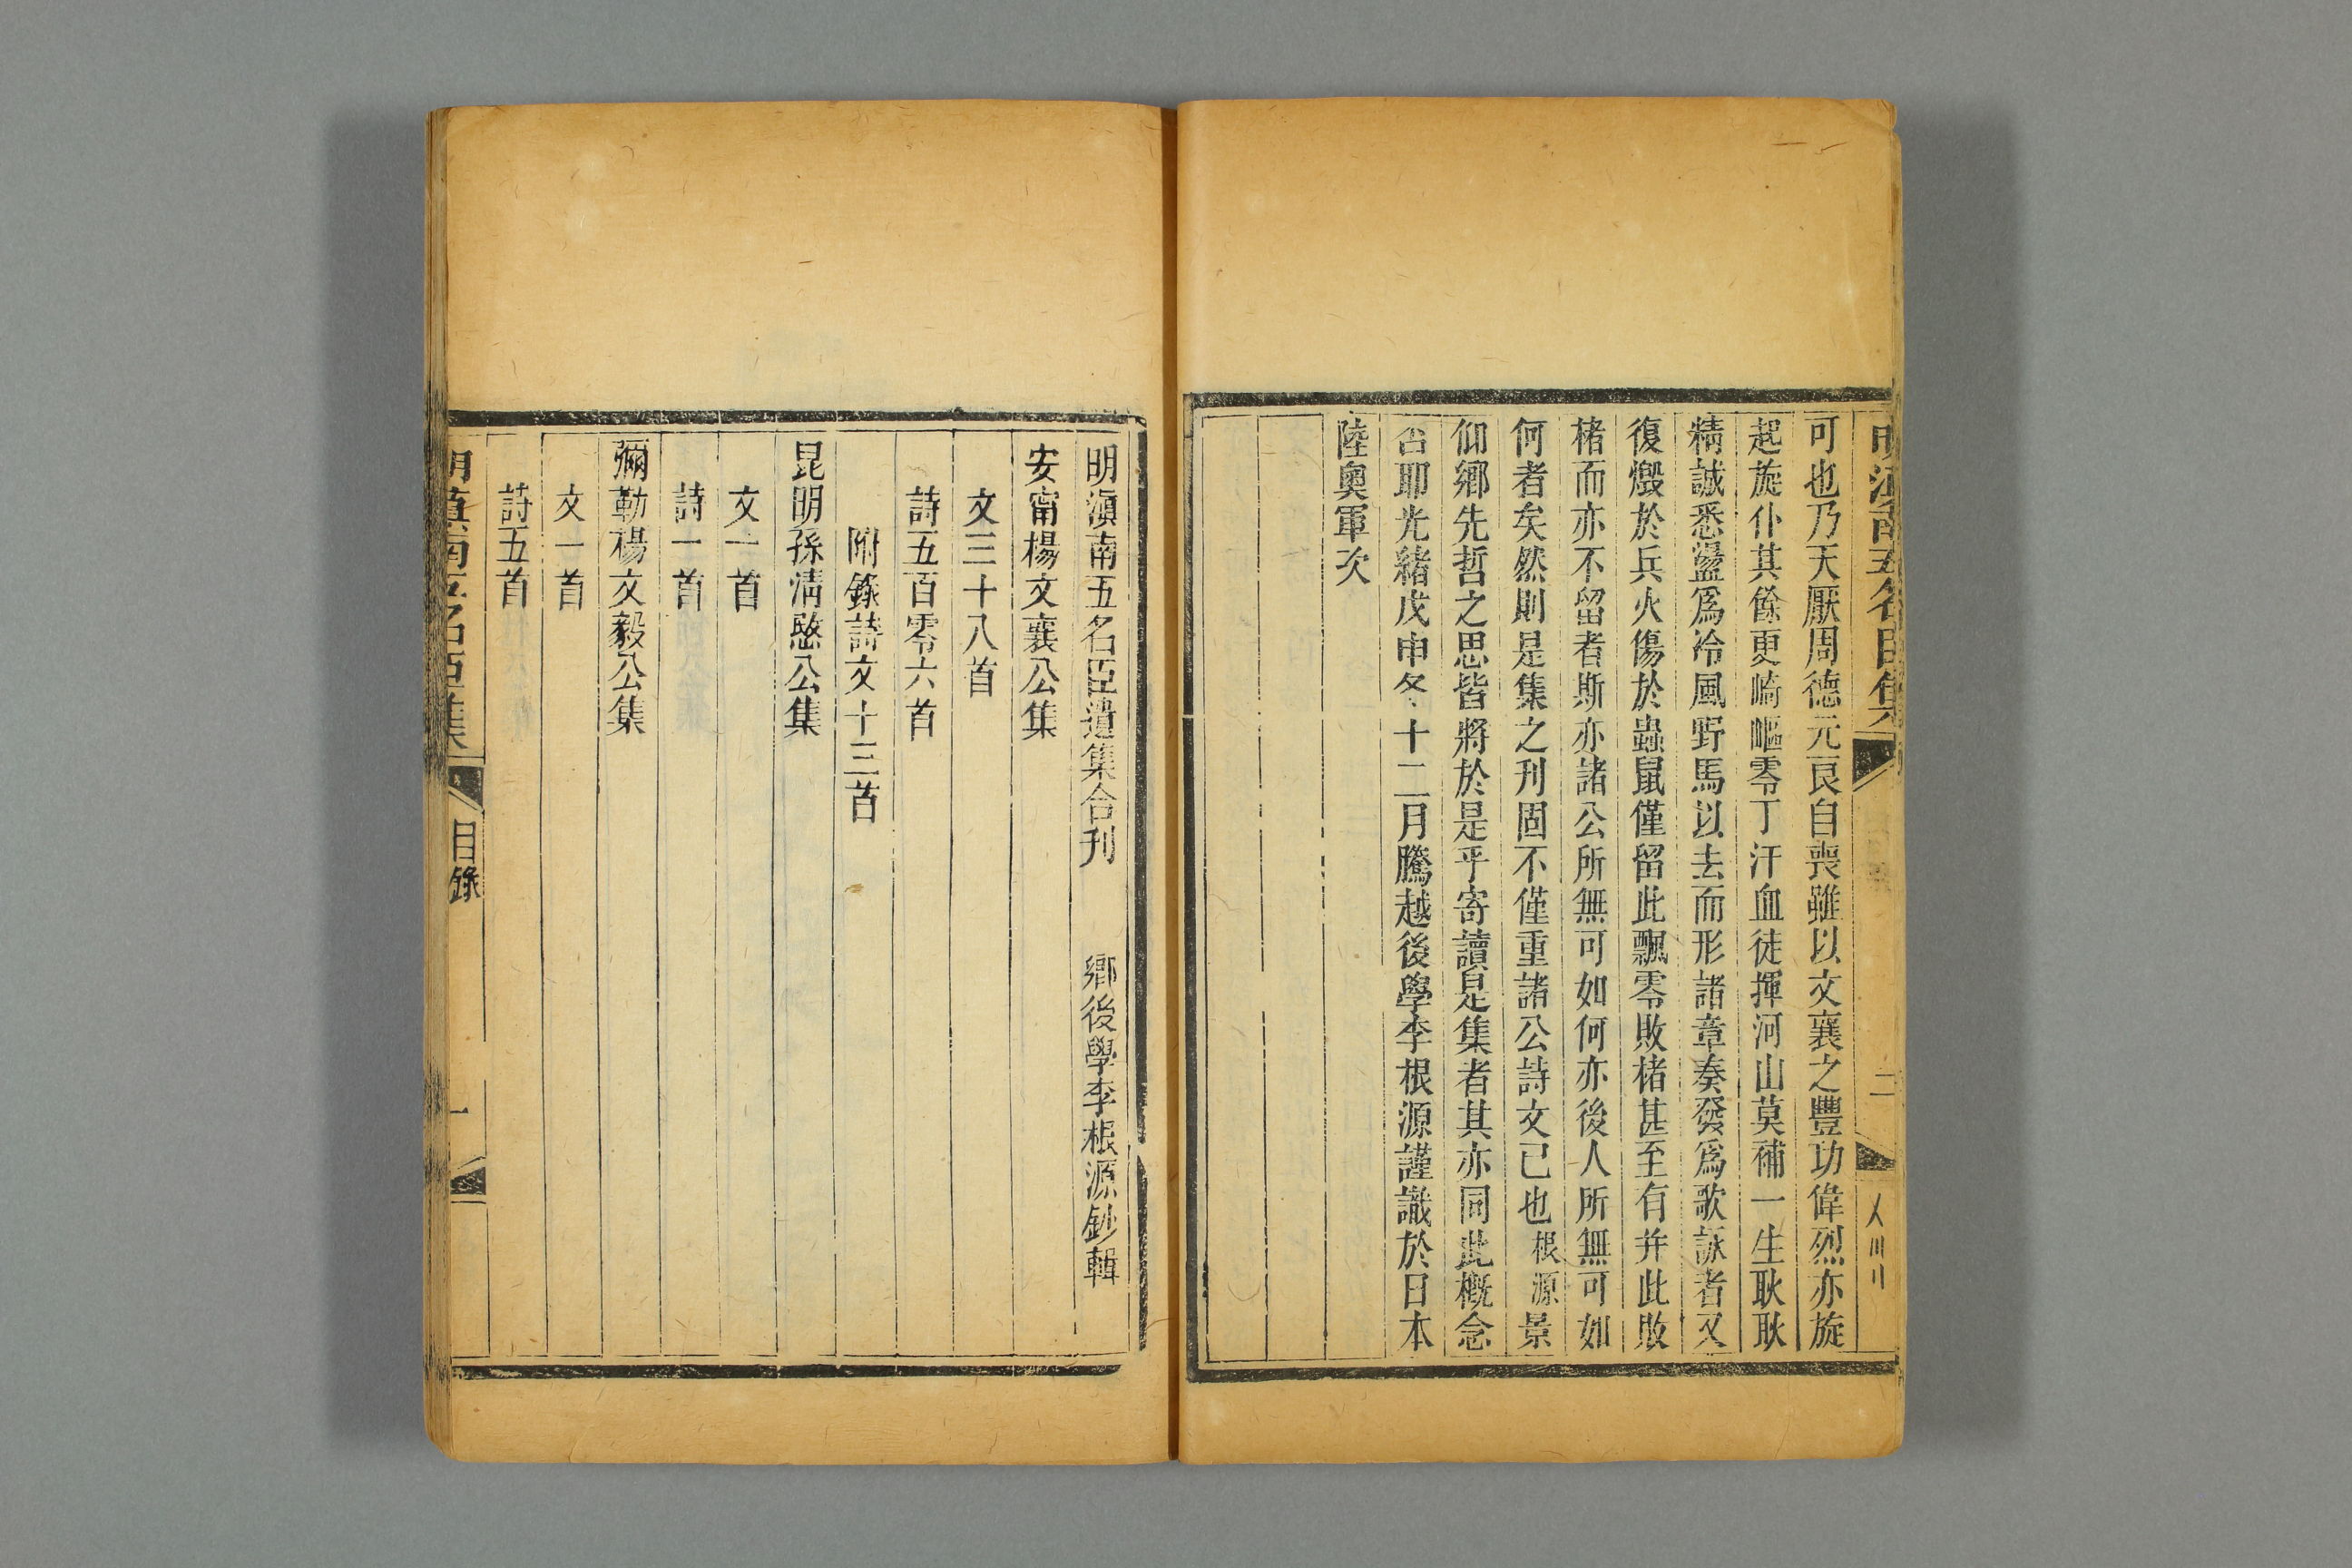 明滇南五名臣集
二
可也乃天厭周德元良自喪雖以文襄之豐功偉烈亦旋
起旋仆其餘更崎嶇零丁汗血徒揮河山莫補一生耿耿
精誠悉盪爲冷風野馬以去而形諸章奏發爲歌詠者又
復燬於兵火傷於蟲鼠僅留此飄零敗楮甚至有并此敗
楮而亦不留者斯亦諸公所無可如何亦後人所無可如
何者矣然則是集之刊固不僅重諸公詩文已也根源景
仰鄉先哲之思皆將於是乎寄讀是集者其亦同此概念
否耶光緒戊申冬十二月騰越後學李根源謹識於日本
陸奧軍次
明滇南五名臣遺集合刊 鄉後學李根源鈔輯
安甯楊文襄公集
文三十八首
詩五百零六首
附錄詩文十三首
昆明孫清愍公集
文一首
詩一首
彌勒楊文毅公集
文一首
詩五首
明滇南五名臣集 目錄 一